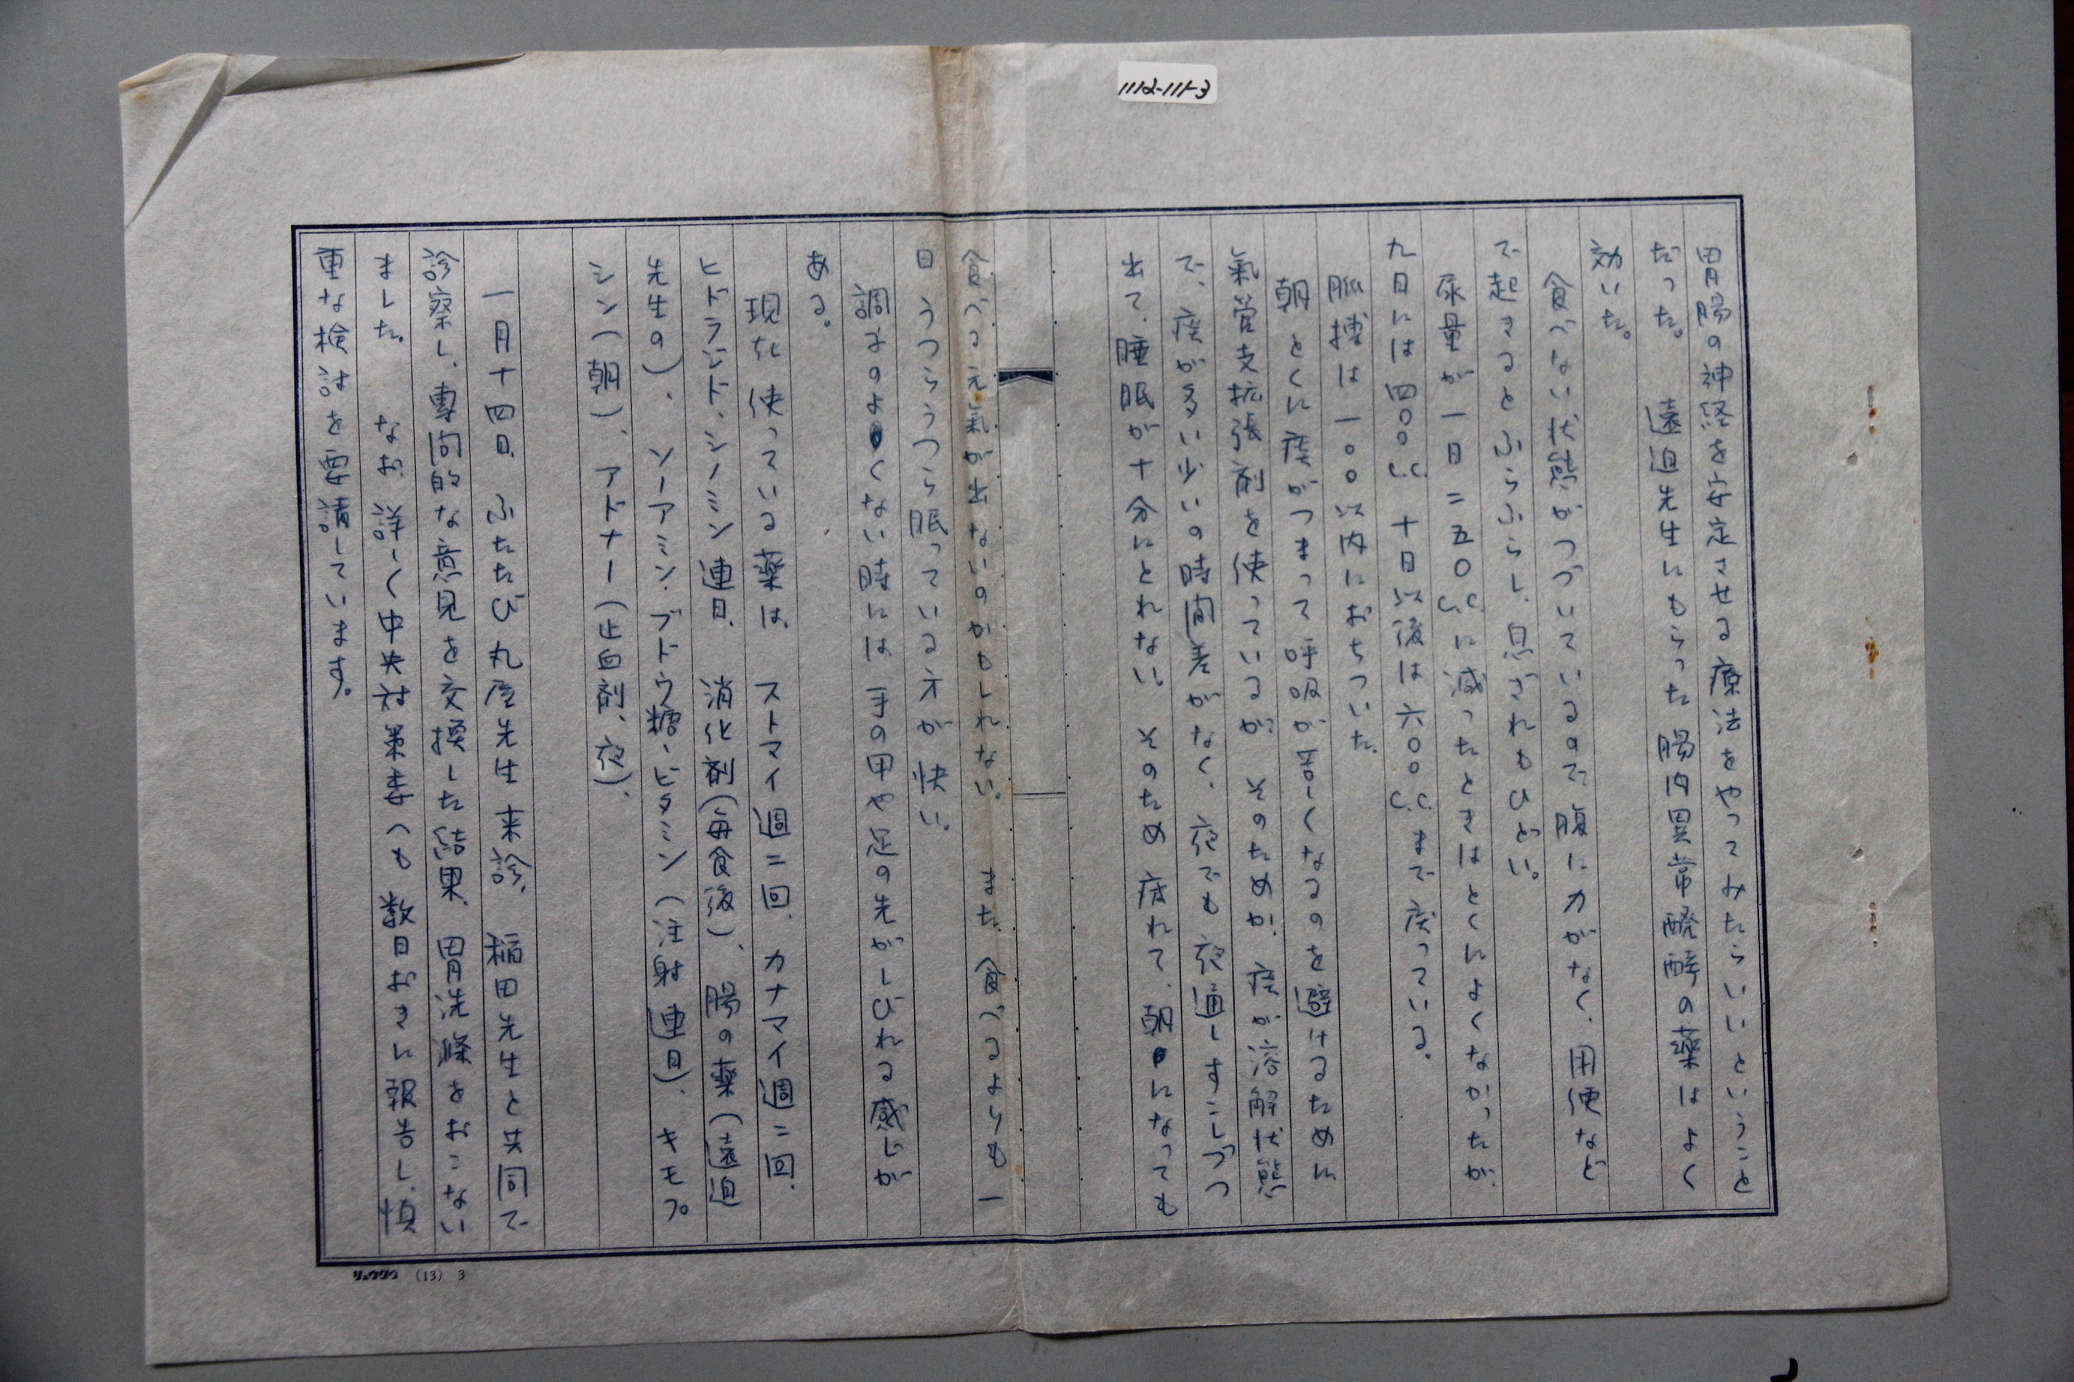 1112-111-3
胃腸の神経を安定させる療法をやってみたらいいということ
だった。　遠迫先生にもらった腸内異常醗酵の薬はよく
効いた。
食べない状態がつづいているので、腹に力がなく、用便など
で起きるとふらふらし、息ぎれもひどい。
尿量が一日二五〇c.c.に減ったときはとくによくなかったが、
九日には四〇〇c.c.　十日以後は六〇〇c.c.まで戻っている。
脈搏は一〇〇以内におちついた。
朝とくに痰がつまって呼吸が苦しくなるのを避けるために
氣管支拡張剤を使っているが、そのためか、痰が溶解状態
で、痰が多い少いの時間差がなく、夜でも夜通しすこしづつ
出て、睡眠が十分にとれない。そのため疲れて、朝になっても
食べる元氣が出ないのかもしれない。　また、食べるよりも一
日うつらうつら眠っている方が快い。
調子のよくない時には、手の甲や足の先がしびれる感じが
ある。
現在使っている薬は、ストマイ週二回、カナマイ週二回、
ヒドラジド、シノミン連日、消化剤（毎食後）、腸の薬（遠迫
先生の）、ソーアミン・ブドウ糖・ビタミン（注射連日）、キモプ
シン（朝）、アドナー（止血剤、夜）、
一月十四日、ふたたび丸屋先生来診、稲田先生と共同で
診察し、専門的な意見を交換した結果、胃洗滌をおこない
ました。　なお、詳しく中央対策委へも数日おきに報告し、慎
重な検討を要請しています。
リュウグウ （13） 3